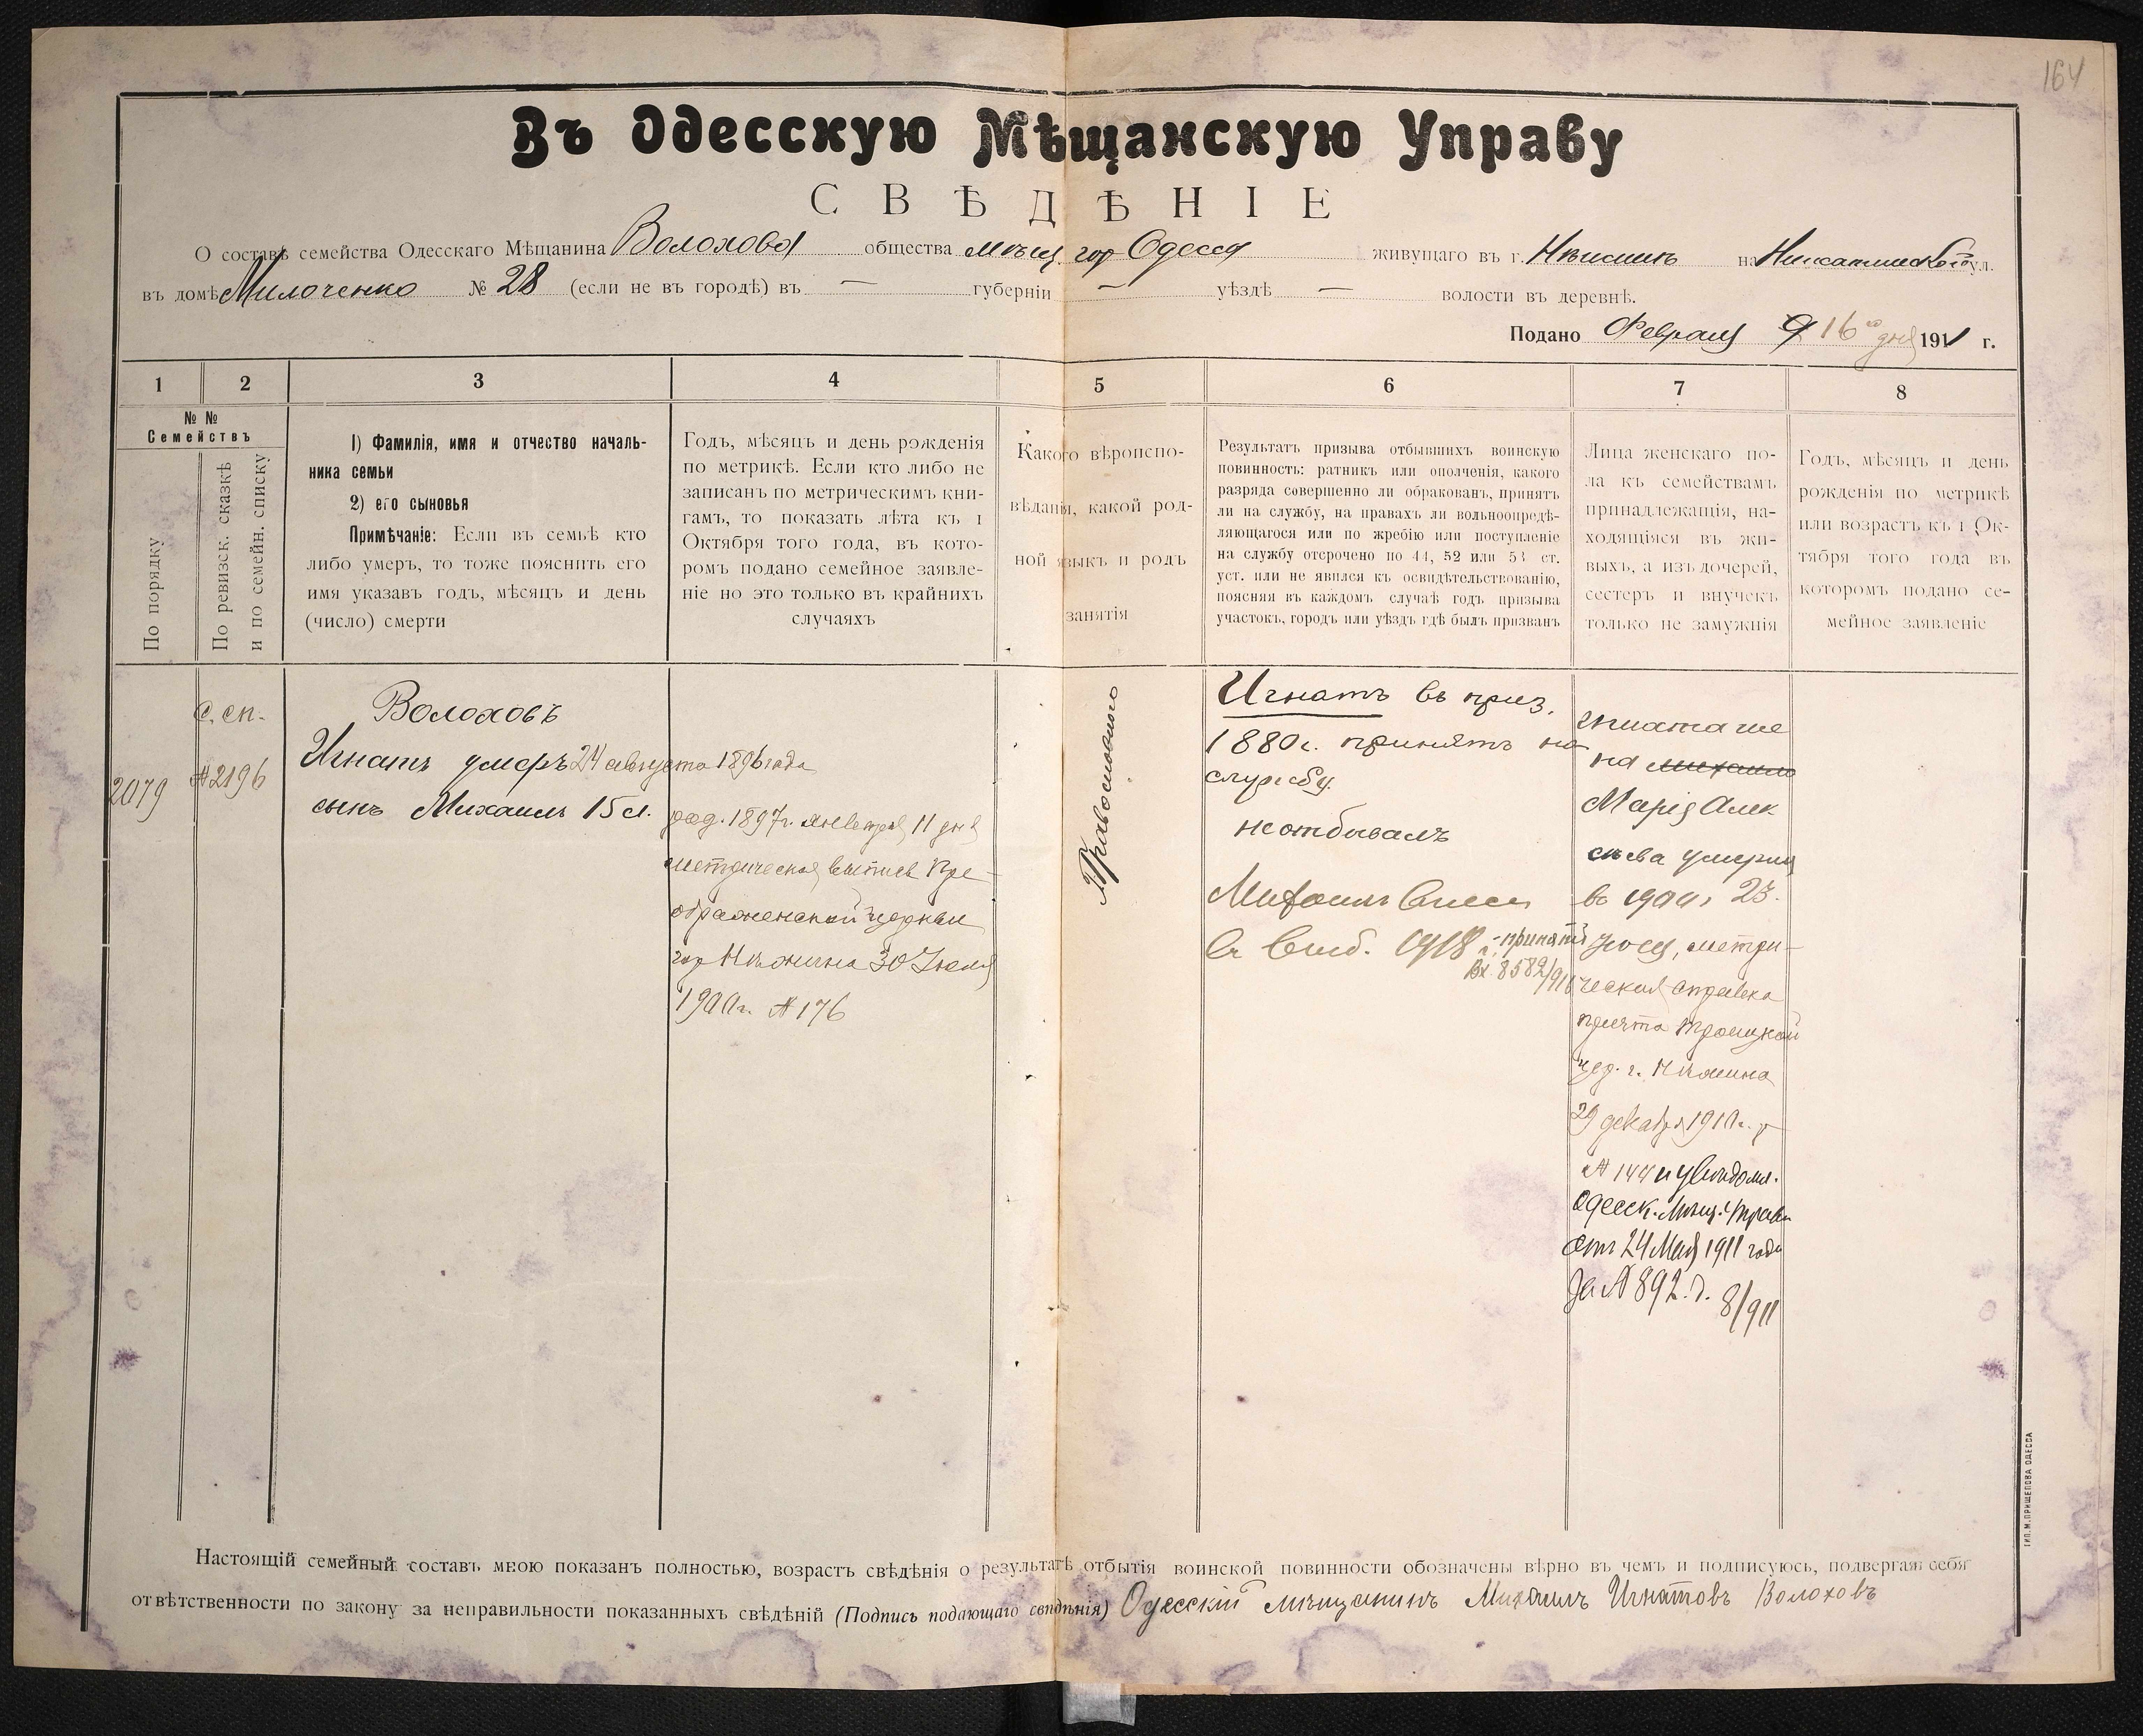 164
Въ Одесскую Мѣщанскую Управу
СВѢДѢНІЕ
О составѣ семейства Одесскаго Мѣщанина Волохова общества мѣщ. гор Одесса живущаго въ г. Нѣжинѣ на ул.
въ домѣ Милоченко № 28 (если не въ городѣ) въ — губерніи — уѣздѣ — волости въ деревнѣ.
Подано Февраля 9 16го дня 1911 г.
1 2 3 4 5 6 7 8
№ № Семействъ
По порядку
По ревизск. сказкѣ
и по семейн. списку
1) Фамилія, имя и отчество началь-
ника семьи
2) его сыновья
Примѣчаніе: Если въ семьѣ кто
либо умеръ, то тоже пояснить его
имя указавъ годъ, мѣсяцъ и день
(число) смерти
Годъ, мѣсяцъ и день рожденія
по метрикѣ. Если кто либо не
записанъ по метрическимъ кни-
гамъ, то показать лѣта къ 1
Октября того года, въ кото-
ромъ подано семейное заявле-
ніе но это только въ крайнихъ
случаяхъ
Какого вѣроиспо-
вѣданія, какой род-
ной языкъ и родъ
занятія
Результатъ призыва отбывшихъ воинскую
повинность: ратникъ или ополченія, какого
разряда совершенно ли обракованъ, принятъ
ли на службу, на правахъ ли вольноопредѣ-
ляющагося или по жребію или поступленіе
на службу отсрочено по 44, 52 или 53 ст.
уст. или не явился къ освидѣтельствованію,
поясняя въ каждомъ случаѣ годъ призыва
участокъ, городъ или уѣздъ гдѣ былъ призванъ
Лица женскаго по-
ла къ семействамъ
принадлежащія, на-
ходящіяся въ жи-
выхъ, а изъ дочерей,
сестеръ и внучекъ
только не замужнія
Годъ, мѣсяцъ и день
рожденія по метрикѣ
или возрастъ къ 1 Ок-
тября того года въ
которомъ подано се-
мейное заявленіе
2079
с. сп.
№2196
Волоховъ
Игнатъ умеръ 24 августа 1896 года
сынъ Михаилъ 15 л.
род. 1897г. января 11 дня
метрическая выпись Пре-
ображенской церкви
гор Нѣжина 30 Іюля
1900г. №176
Православнаго
Игнатъ въ приз.
1880г. принятъ на
службу.
не отбывалъ
Михаилъ
1918 г. принятъ
Вх. 8582/911
Игната же
на Михаила
Марія Алек
сѣева умерши
въ 1900г 23.
Іюля, метри-
ческая справка
причта Троицкой
цер. г. Нѣжина
29 декабря 1910г.
№ 144 и увѣдомл.
Одесск. Мѣщ. Управы
отъ 24 Мая 1911 года
За №892. д. 8/911
Настоящій семейный составъ мною показанъ полностью, возрастъ свѣдѣнія о результатѣ отбытія воинской повинности обозначены вѣрно въ чемъ и подписуюсь, подвергая себя
отвѣтственности по закону за неправильности показанныхъ свѣдѣній (Подпись подающаго свѣдѣнія) Одесскій мѣщанинъ Михаилъ Игнатовъ Волоховъ
ТИП. М. ПРИЩЕПОВА ОДЕССА